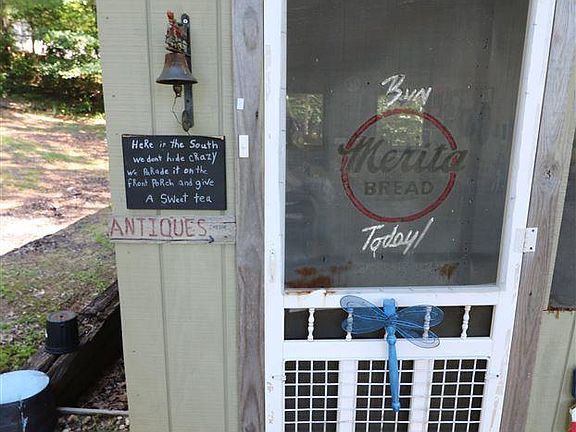 HeRe in the South
we dont hide cRazy
we PaRade it on the
fRont PoRch and give
A Sweet tea
ANTIQUES
Buy
Merita
BREAD
Today!